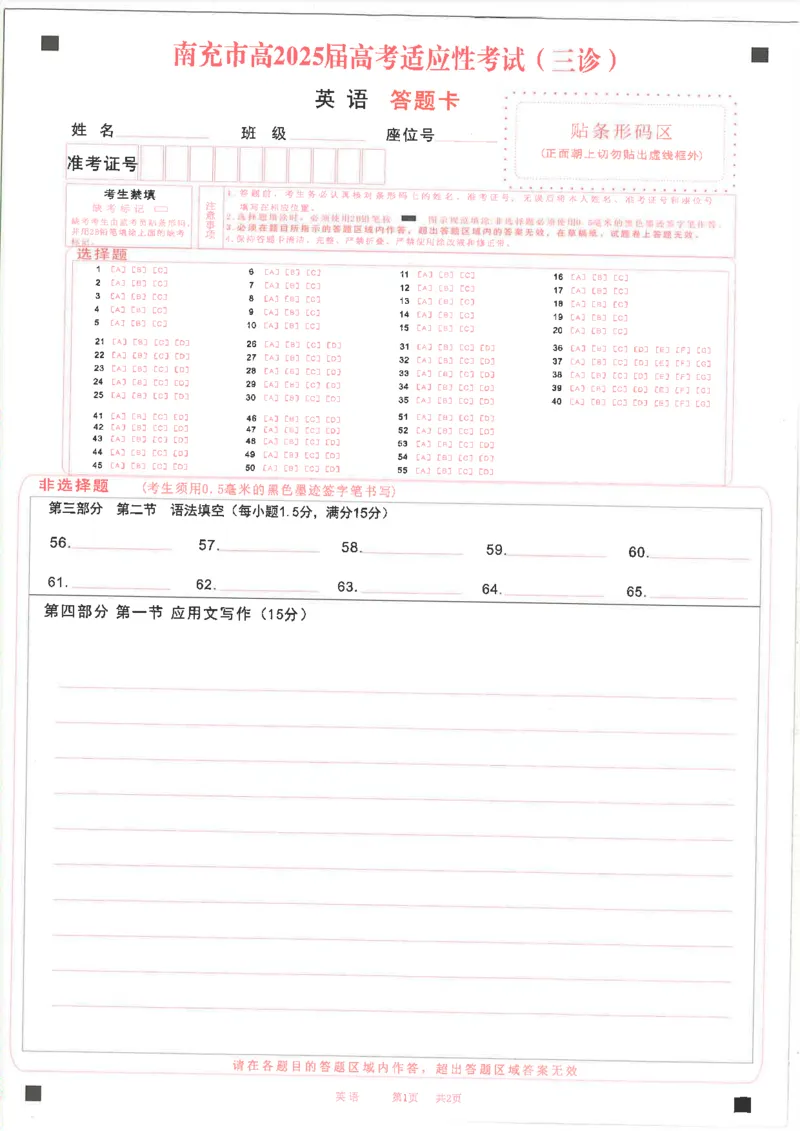 南充市高2025届高考适应性考试（三诊）
英 语 答题卡
姓 名
班 级
座位号
准考证号
贴条形码区
(正面朝上切勿贴出虚线框外)
考生禁填
缺考标记
缺考考生由监考员贴条形码，
并用2B铅笔填涂上面的缺考
标记。
注意事项
1.答题前，考生务必认真核对条形码上的姓名、准考证号，无误后将本人姓名、准考证号和座位号
填写在相应位置。
2.选择题填涂时，必须使用2B铅笔按 图示规范填涂;非选择题必须使用0.5毫米的黑色墨迹签字笔作答。
3.必须在题目所指示的答题区域内作答，超出答题区域内的答案无效，在草稿纸、试题卷上答题无效。
4.保持答题卡清洁、完整、严禁折叠，严禁使用涂改液和修正带。
选择题
1 [A] [B] [C] 6 [A] [B] [C] 11 [A] [B] [C] 16 [A] [B] [C]
2 [A] [B] [C] 7 [A] [B] [C] 12 [A] [B] [C] 17 [A] [B] [C]
3 [A] [B] [C] 8 [A] [B] [C] 13 [A] [B] [C] 18 [A] [B] [C]
4 [A] [B] [C] 9 [A] [B] [C] 14 [A] [B] [C] 19 [A] [B] [C]
5 [A] [B] [C] 10 [A] [B] [C] 15 [A] [B] [C] 20 [A] [B] [C]
21 [A] [B] [C] [D] 26 [A] [B] [C] [D] 31 [A] [B] [C] [D] 36 [A] [B] [C] [D] [E] [F] [G]
22 [A] [B] [C] [D] 27 [A] [B] [C] [D] 32 [A] [B] [C] [D] 37 [A] [B] [C] [D] [E] [F] [G]
23 [A] [B] [C] [D] 28 [A] [B] [C] [D] 33 [A] [B] [C] [D] 38 [A] [B] [C] [D] [E] [F] [G]
24 [A] [B] [C] [D] 29 [A] [B] [C] [D] 34 [A] [B] [C] [D] 39 [A] [B] [C] [D] [E] [F] [G]
25 [A] [B] [C] [D] 30 [A] [B] [C] [D] 35 [A] [B] [C] [D] 40 [A] [B] [C] [D] [E] [F] [G]
41 [A] [B] [C] [D] 46 [A] [B] [C] [D] 51 [A] [B] [C] [D]
42 [A] [B] [C] [D] 47 [A] [B] [C] [D] 52 [A] [B] [C] [D]
43 [A] [B] [C] [D] 48 [A] [B] [C] [D] 53 [A] [B] [C] [D]
44 [A] [B] [C] [D] 49 [A] [B] [C] [D] 54 [A] [B] [C] [D]
45 [A] [B] [C] [D] 50 [A] [B] [C] [D] 55 [A] [B] [C] [D]
非选择题 (考生须用0.5毫米的黑色墨迹签字笔书写)
第三部分 第二节 语法填空（每小题1.5分，满分15分）
56. 57. 58. 59. 60.
61. 62. 63. 64. 65.
第四部分 第一节 应用文写作（15分）
请在各题目的答题区域内作答，超出答题区域答案无效
英语 第1页 共2页